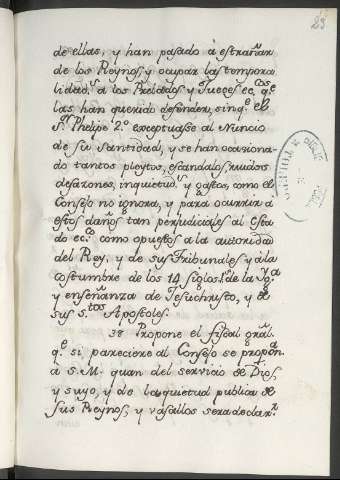 23
de ellas, y han pasado à estrañar
de los Reynos, y ocupar las tempora
lidad.s a los Prelados, y Jueces ec.cos q.e
las han querido defender, sinq.e el
S.or Phelipe 2.o exceptuase al Nuncio
de su Santidad, y se han ocasiona-
do tantos pleytos, escandalos, ruidos
desazones, inquietud.s y gastos, como el
Consejo no ignora, y para ocurrir à
estos daños tan perjudiciales al Esta
do ec.co como opuestos a la autoridad
del Rey, y de sus Tribunales y à la
costumbre de los 14 siglos p.os de la Yg.a
y enseñanza de Jesuchristo, y de
sus s.tos Apostoles.
38 Propone el fiscal gral.
q.e si pareciere al Consejo se propon.a
a S. M. quan del servicio de Dios,
y suyo, y de la quietud publica de
sus Reynos, y vasallos sera declar.r